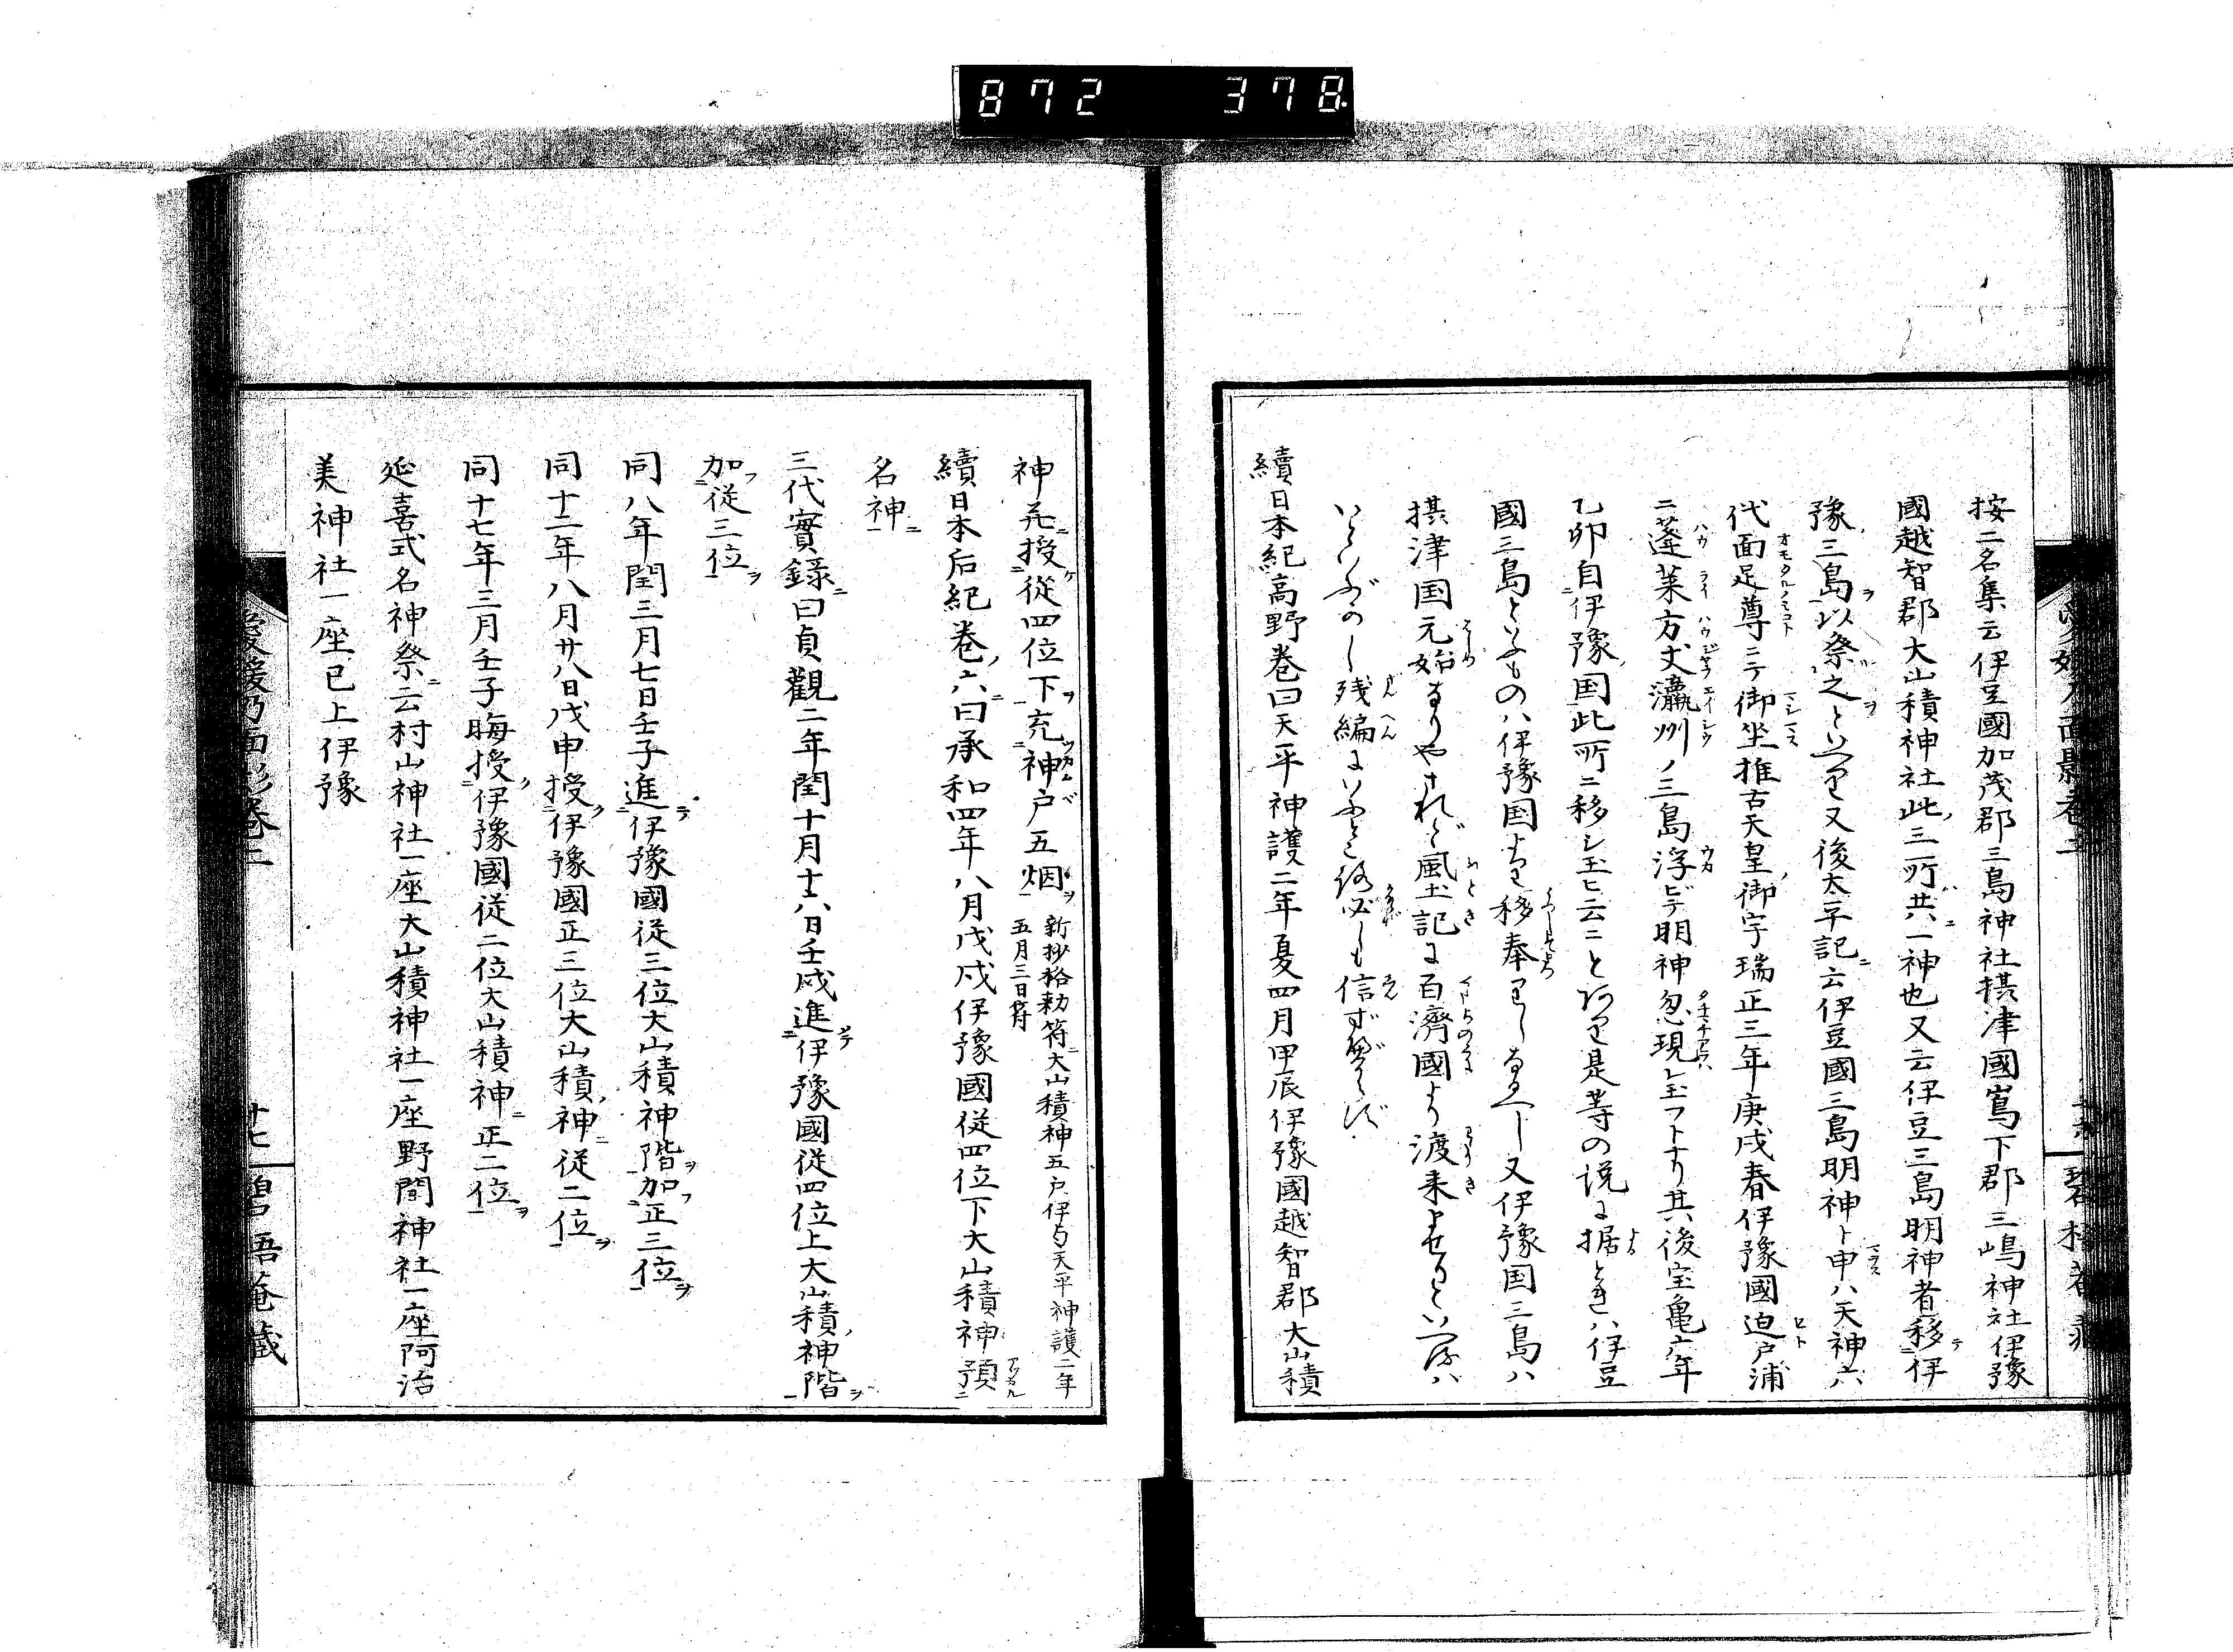 872 378
按二名集云伊豆國加茂郡三島神社摂津國嶌下郡三嶋神社伊豫
國越智郡大山積神社此三所共一神也又云伊豆三島明神者移伊
豫三島以祭之といへり又後太平記云伊豆國三島明神ト申ハ天神六
代面足尊ニテ御坐推古天皇御宇瑞正三年庚戌春伊豫國迫戸浦
ニ蓬莱方丈瀛州ノ三島浮ビテ明神忽現レ玉フトナリ其後宝亀六年
乙卯自伊豫国此所ニ移シ玉ヒ云ニとあり是等の説に据ときハ伊豆
國三島といふものハ伊豫国より移奉りしなるべし又伊豫国三島ハ
摂津国元始なりやされど風土記に百濟國より渡来ませりといへるハ
残編にいふところ必しも信ず
續日本紀高野巻曰天平神護二年夏四月甲辰伊豫國越智郡大山積
神並授従四位下充神戸五烟 新抄格勅符大山積神五戸伊与天平神護二年
五月三日符
續日本后紀巻六曰承和四年八月戊戌伊豫國従四位下大山積神預
名神
三代實錄曰貞觀二年閏十月十六日壬戌進伊豫國従四位上大山積神階
加従三位
同八年閏三月七日壬子進伊豫國従三位大山積神階加正三位
同十二年八月廿八日戊申授伊豫國正三位大山積神従二位
同十七年三月壬子晦授伊豫國従二位大山積神正二位
延喜式名神祭云村山神社一座大山積神社一座野間神社一座阿治
美神社一座已上伊豫
愛媛乃面影巻二
十七
碧梧菴藏